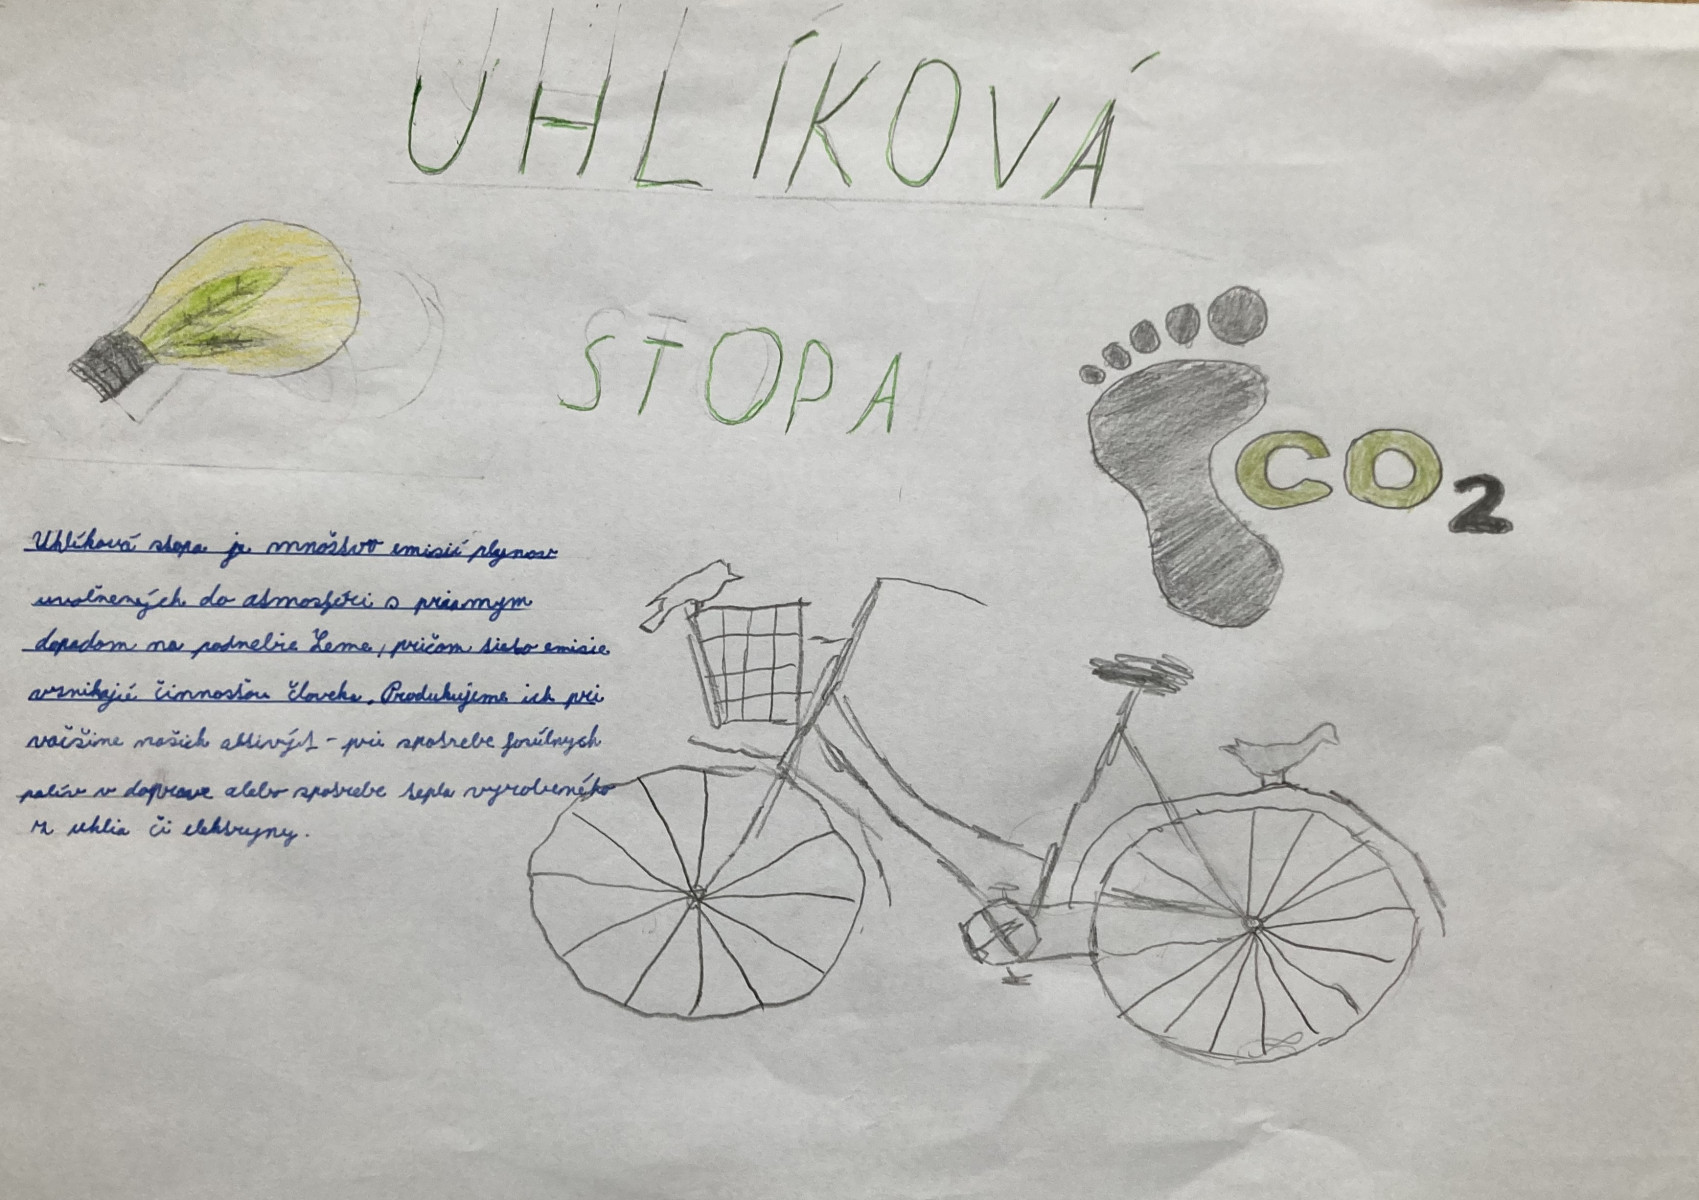 UHLÍKOVÁ
STOPA
CO2
Uhlíková stopa je množstvo emisií plynov
uvoľnených do atmosféri s priamym
dopadom na podnebie Zeme, pričom tieto emisie
vznikajú činnosťou človeka. Produkujeme ich pri
väčšine našich aktivít - pri spotrebe fosílnych
palív v doprave alebo spotrebe tepla vyrobeného
z uhlia či elektryny.